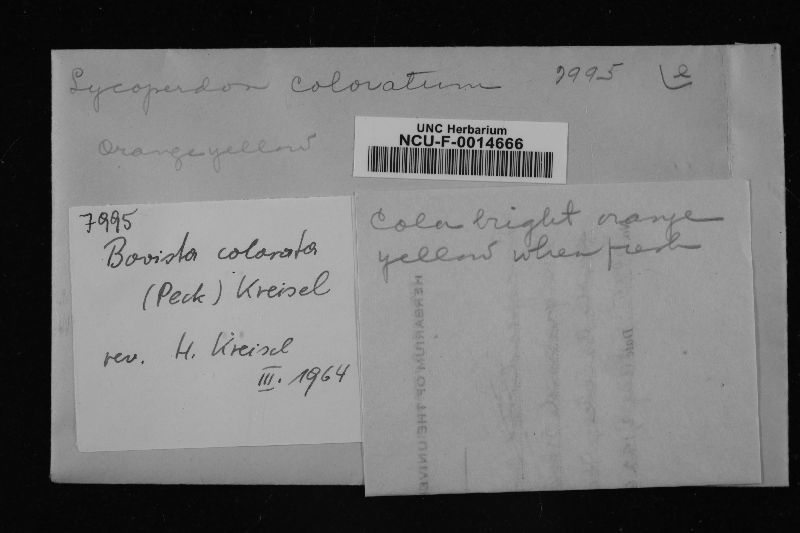 Lycoperdon coloratum 7995 e
UNC Herbarium
NCU-F-0014666
Orangeyellow
7995
Bovista colorata
(Peck) Kreisel
rev. H. Kreisel
III. 1964
Color bright orange
yellow when fresh
HERBARIUM OF THE UNIVE
Date